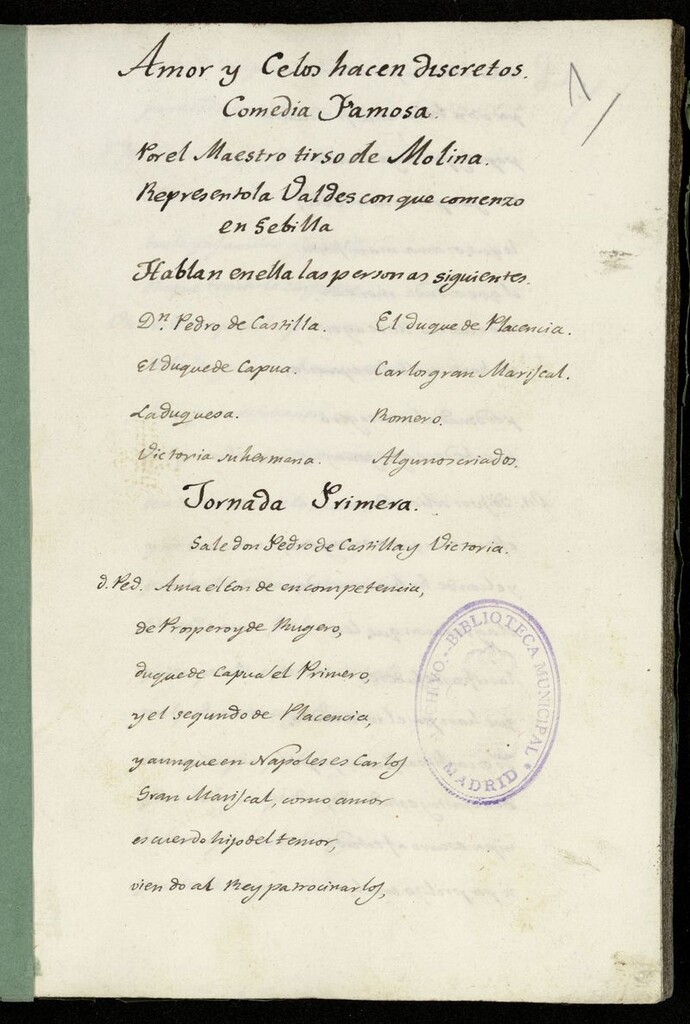 Amor y Celos hacen discretos.
1
Comedia Famosa.
Por el Maestro tirso de Molina.
Representola Valdes con que comenzo
en Sebilla
Hablan en ella las personas siguientes.
Dn. Pedro de Castilla. El duque de Placencia.
El duque de Capua. Carlos gran Mariscal.
La duquesa. Romero.
Victoria su hermana. Algunos criados.
Jornada Primera.
Sale don Pedro de Castilla y Victoria.
d. Ped. Ama el Conde en competencia,
de Prospero y de Rugero,
duque de Capua el Primero,
y el segundo de Placencia,
y aunque en Napoles es Carlos
Gran Mariscal, como amor
es cuerdo hijo del temor,
viendo al Rey patrocinarlos,
ARCHIVO - BIBLIOTECA MUNICIPAL
* MADRID *